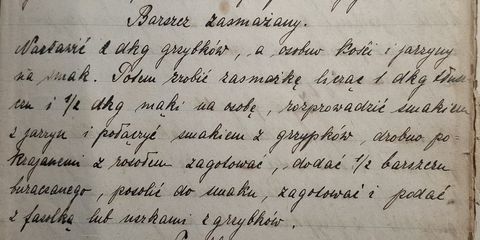 Barszcz zasmażany.
Nastawić 2 dkg grzybków, a osobno kości i jarzyny
na smak. Potem zrobić zasmażkę licząc 1 dkg tłusz
czu i 1/2 dkg mąki na osobę, rozprowadzić smakiem
z jarzyn i połączyć smakiem z grzypków, drobno po-
krajanemi z rosołem zagotować, dodać 1/2 barszczu
buraczanego, posolić do smaku, zagotować i podać
z fasolką lub uszkami z grzybków.